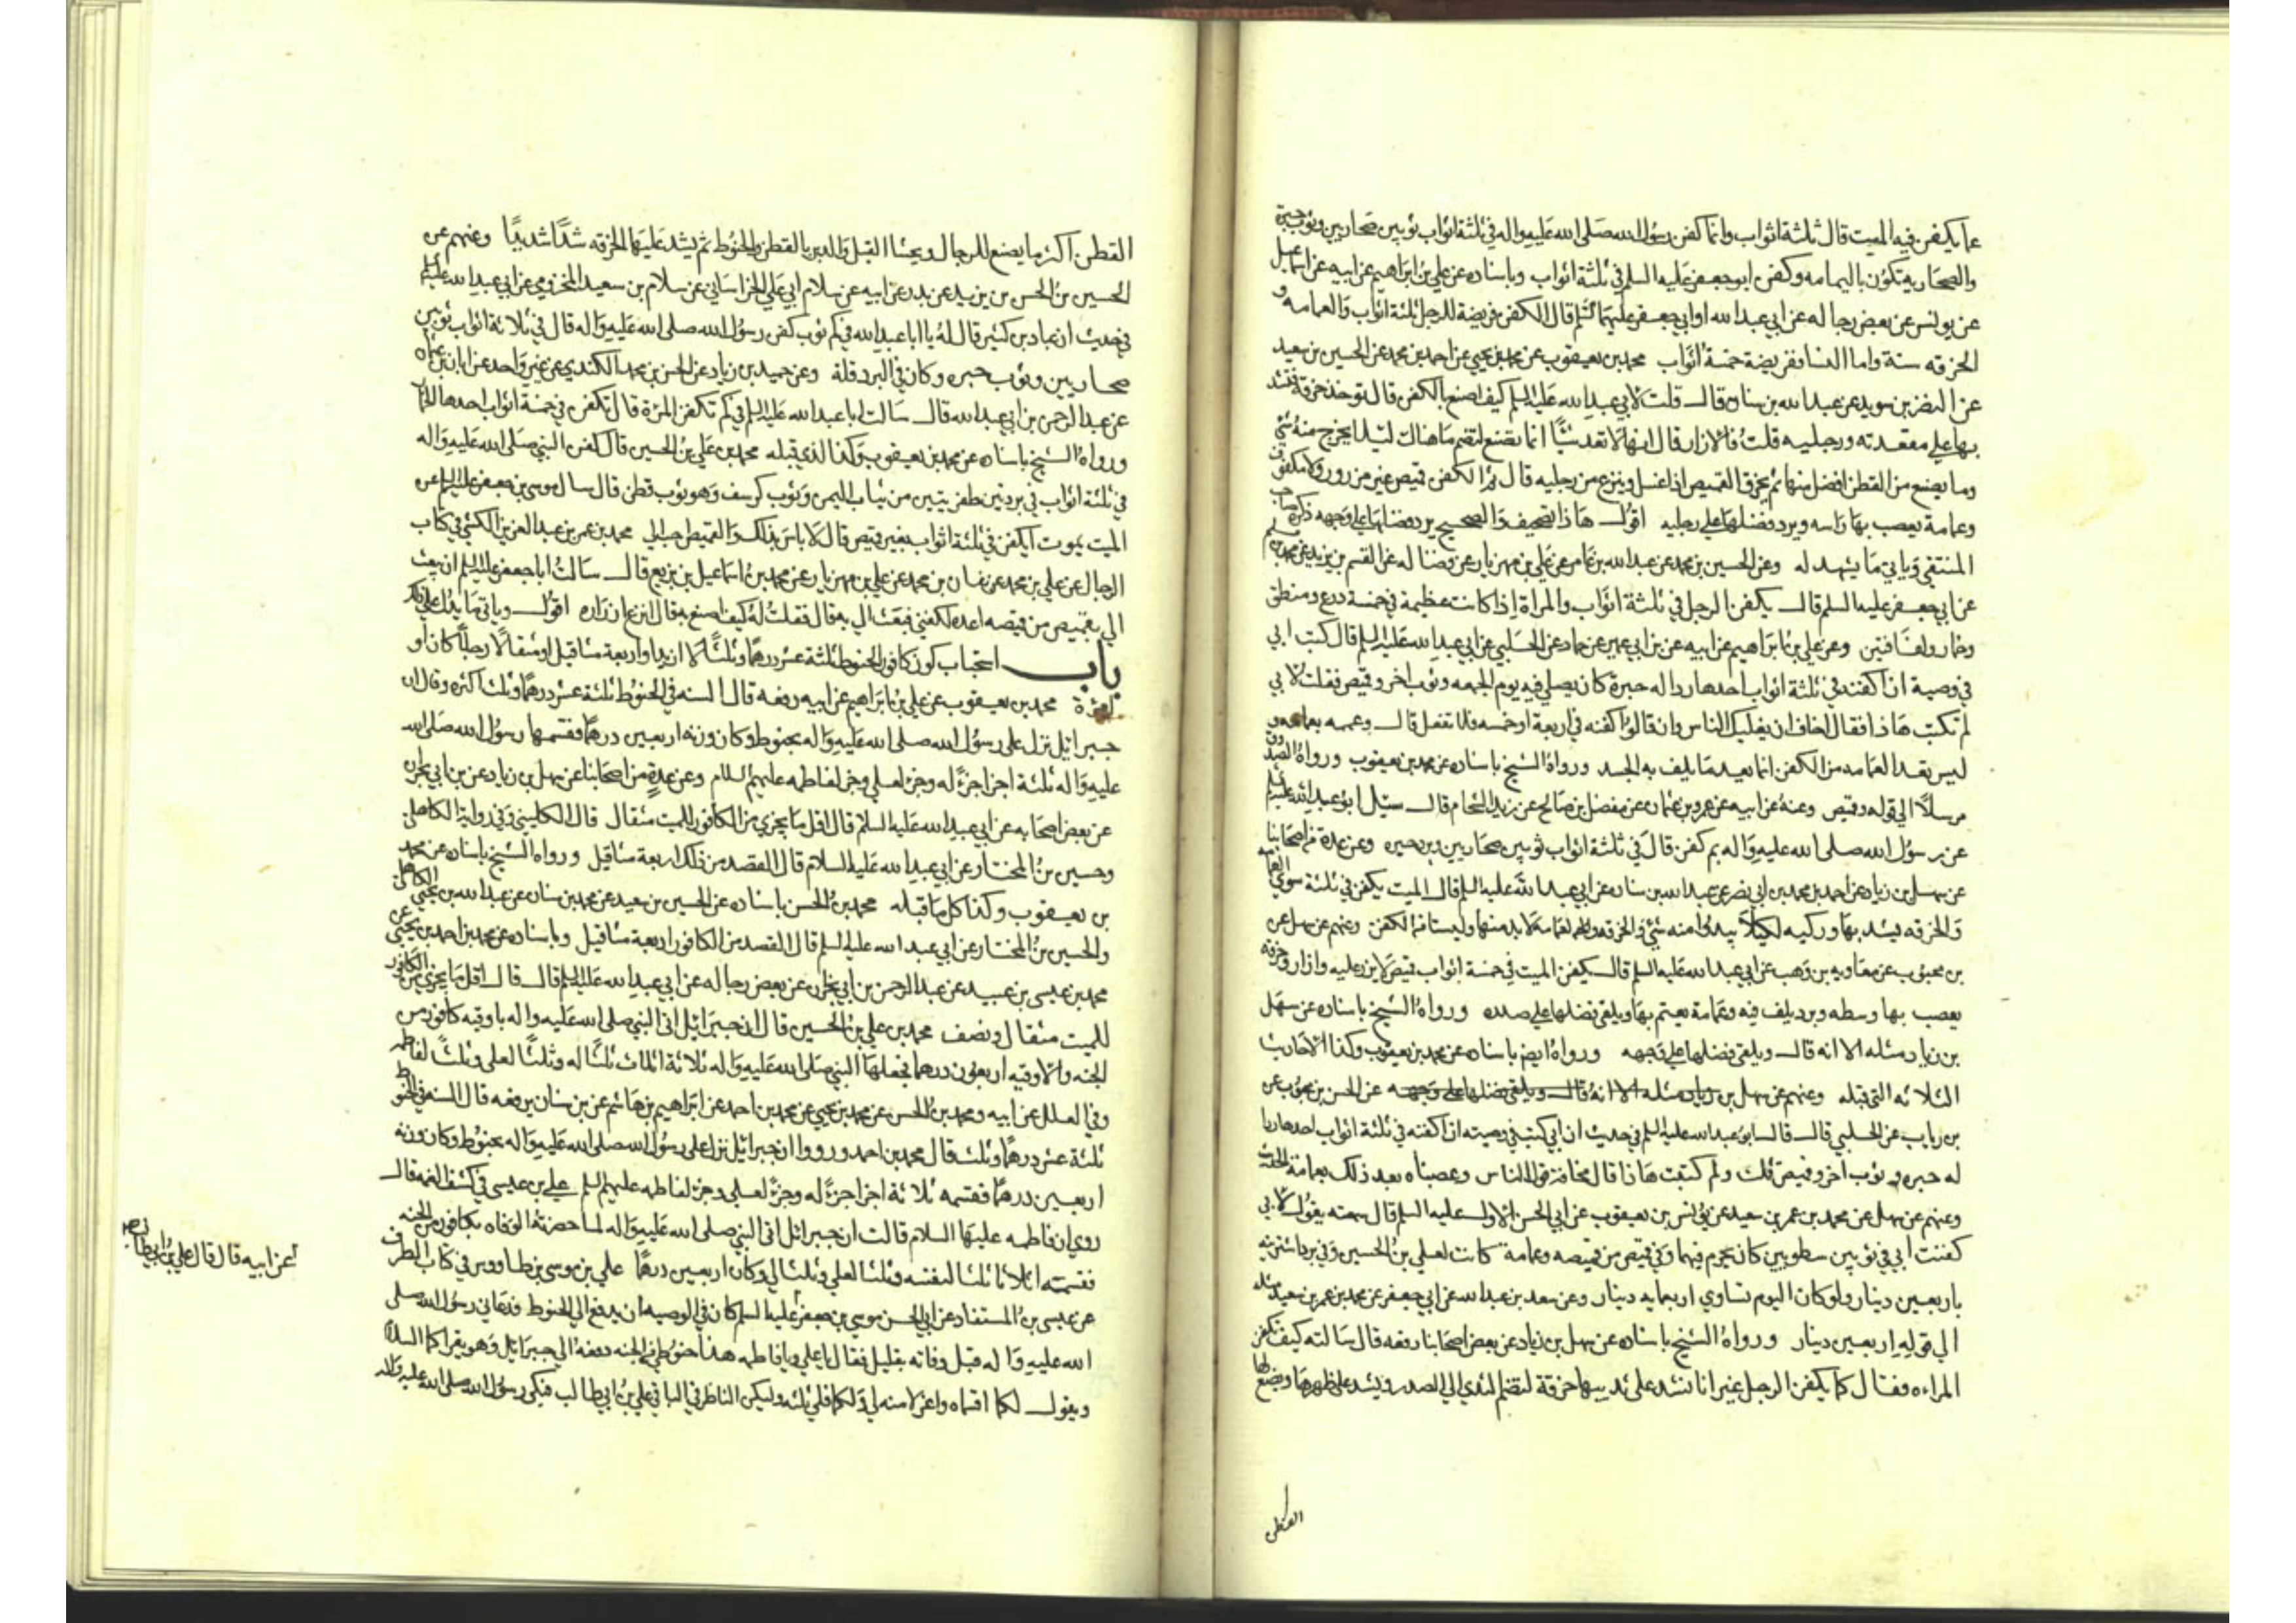 عما يكفن فيه الميت قال ثلثة اثواب وانما كفن رسول الله صلى الله عليه واله في ثلثة اثواب ثوبين صحاريين وثوب حبرة
والصحاريه تكون باليمامه وكفن ابو جعفر عليه السلم في ثلثة اثواب وباسناده عن علي بن ابراهيم عن ابيه عن اسماعيل
عن يونس عن بعض رجاله عن ابي عبد الله او ابي جعفر عليهما السلم قال الكفن فريضة للرجل ثلثة اثواب والعمامه و
الخرقه سنة واما النسا ففريضة خمسة اثواب محمد بن يعقوب عن محمد بن يحيي عن احمد بن محمد عن الحسين بن سعيد
عن النضر بن سويد عن عبد الله بن سنان قال قلت لابي عبد الله عليه السلم كيف اصنع بالكفن قال توخذ خرقة فتشد
بها علي مقعدته ورجليه قلت فالازار قال انها لا تعد شيئا انما تصنع لتضم ما هناك لئلا يخرج منه شي
وما يصنع من القطن افضل منها ثم يخرق القميص اذا غسل وينزع من رجليه قال ثم الكفن قميص غير مزرور ولا مكفوف
وعمامة يعصب بها راسه ويرد فضلها على رجليه اقول هاذا تصحيف والصحيح يرد فضلها علي وجهه ذكره صاحب
المنتقى وياتي ما يشهد له وعن الحسين بن محمد عن عبد الله بن عامر عن علي بن مهزيار عن فضاله عن القسم بن يزيد عن محمد بن مسلم
عن ابي جعفر عليه السلم قال يكفن الرجل في ثلثة اثواب والمراة اذا كانت عظيمة في خمسة درع ومنطق
وخمار ولفافتين وعن علي بن ابراهيم عن ابيه عن بن ابي عمير عن حماد عن الحلبي عن ابي عبد الله عليه السلم قال كتب ابي
في وصيه ان اكفنه في ثلثة اثواب احدها ردا له حبرة كان يصلي فيه يوم الجمعه وثوب اخر وقميص فقلت لابي
لم تكتب هاذا فقال اخاف ان يغلبك الناس وان قالوا كفنه في اربعة او خمسه فلا تفعل قال وعممه بعمامه و
ليس تعد العمامه من الكفن انما يعد ما يلف به الجسد ورواه الشيخ باسناده عن محمد بن يعقوب ورواه الصدوق
مرسلا الي قوله وقميص وعنه عن ابيه عن عمرو بن عثمان عن مفضل بن صالح عن زيد الشحام قال سئل ابو عبد الله عليه السلم
عن رسول الله صلى الله عليه واله بم كفن قال في ثلثة اثواب ثوبين صحاريين وبرد حبره وعن عدة من اصحابنا
عن سهل بن زياد عن احمد بن محمد بن ابي نصر عن عبد الله بن سنان عن ابي عبد الله عليه السلم قال الميت يكفن في ثلثة سوي العمامه
والخرقه يشد بها وركيه لكيلا يبدوا منه شي والخرقه والعمامة لا بد منها وليستا من الكفن وعنهم عن سهل عن
بن محبوب عن معاويه بن وهب عن ابي عبد الله عليه السلم قال يكفن الميت في خمسة اثواب قميص لا يزر عليه وازار وخرقه
يعصب بها وسطه وبرد يلف فيه وعمامة يعتم بها ويلقي فضلها على صدره ورواه الشيخ باسناده عن سهل
بن زياد مثله الا انه قال ويلقي فضلها علي وجهه ورواه ايضا باسناده عن محمد بن يعقوب وكذا الاحاديث
الثلاثه التي قبله وعنهم عن سهل بن زياد مثله الا انه قال ويلقي فضلها علي وجهه عن الحسن بن محبوب عن
بن رياب عن الحلبي قال قال ابو عبد الله عليه السلم في حديث ان ابي كتب في وصيته ان اكفنه في ثلثة اثواب احدها ردا
له حبره وثوب اخر وقميص قلت ولم كتبت هاذا قال مخافة قول الناس وعصبناه بعد ذلك بعمامة الحديث
وعنهم عن سهل عن محمد بن عمر بن سعيد عن يونس بن يعقوب عن ابي الحسن الاول عليه السلم قال سمعته يقول اني
كفنت ابي في ثوبين شطويين كان يحرم فيهما وفي قميص من قميصه وعمامة كانت لعلي بن الحسين وفي برد اشتريته
باربعين دينار ولو كان اليوم تساوي اربعمايه دينار وعن سعد بن عبد الله عن ابي جعفر عن محمد بن عمر بن سعيد مثله
الي قوله اربعين دينار ورواه الشيخ باسناده عن سهل بن زياد عن بعض اصحابنا رفعه قال سالته كيف تكفن
المراه فقال كما يكفن الرجل غير انا نشد على ثدييها خرقة لتضم الثدي الي الصدر ويشد علي ظهرها ويصنع لها
القطن
القطن اكثر ما يصنع للرجال ويحشا القبل والدبر بالقطن والحنوط ثم يشد عليها الخرقه شدا شديدا وعنهم عن
الحسين بن الحسن بن يزيد عن بدر عن ابيه عن سلام ابي علي الخراساني عن سلام بن سعيد المخزومي عن ابي عبد الله عليه السلم
في حديث ان عباد بن كثير قال له يا ابا عبد الله في كم ثوب كفن رسول الله صلى الله عليه واله قال في ثلاثة اثواب ثوبين
صحاريين وثوب حبره وكان في البرد قلة وعن حميد بن زياد عن الحسن بن محمد الكندي عن غير واحد عن ابان بن عثمان
عن عبد الرحمن بن ابي عبد الله قال سالت ابا عبد الله عليه السلم في كم تكفن المرة قال تكفن في خمسة اثواب احدها الخمار
ورواه الشيخ باسناده عن محمد بن يعقوب وكذا الذي قبله محمد بن علي بن الحسين قال كفن النبي صلى الله عليه واله
في ثلثة اثواب في بردتين ظفريتين من ثياب اليمن وثوب كرسف وهو ثوب قطن قال سال موسى بن جعفر عليه السلم عن
الميت يموت ايكفن في ثلثة اثواب بغير قميص قال لا باس بذلك والقميص احب الي محمد بن عمر بن عبد العزيز الكشي في كتاب
الرجال عن علي بن محمد عن بنان بن محمد عن علي بن مهزيار عن محمد بن اسماعيل بن بزيع قال سالت ابا جعفر عليه السلم ان يبعث
الي بقميص من قميصه اعده لكفني فبعث الي به قال فقلت له كيف اصنع به قال انزع ازراره اقول وياتي ما يدل علي ذلك
باب استحباب كون كافور الحنوط ثلثة عشر درهما وثلثا لا ازيد او اربعة مثاقيل او مثقالا رجلا كان او
امرة محمد بن يعقوب عن علي بن ابراهيم عن ابيه رفعه قال السنه في الحنوط ثلثة عشر درهما وثلث اكثره وقال ان
جبرائيل نزل على رسول الله صلى الله عليه واله بحنوط وكان وزنه اربعين درهما فقسمها رسول الله صلى الله
عليه واله ثلثة اجزا جزء له وجزء لعلي وجزء لفاطمه عليهم السلام وعن عدة من اصحابنا عن سهل بن زياد عن بن ابي نجران
عن بعض اصحابه عن ابي عبد الله عليه السلام قال اقل ما يجزي من الكافور للميت مثقال قال الكليني وفي رواية الكاهلي
وحسين بن المختار عن ابي عبد الله عليه السلام قال القصد من ذلك اربعة مثاقيل ورواه الشيخ باسناده عن محمد
بن يعقوب وكذا كل ما قبله محمد بن الحسن باسناده عن الحسين بن سعيد عن محمد بن سنان عن عبد الله بن يحيي الكاهلي
والحسين بن المختار عن ابي عبد الله عليه السلم قال القصد من الكافور اربعة مثاقيل وباسناده عن محمد بن احمد بن يحيي عن
محمد بن عيسى بن عبيد عن عبد الرحمن بن ابي نجران عن بعض رجاله عن ابي عبد الله عليه السلم قال قال اقل ما يجزي من الكافور
للميت مثقال ونصف محمد بن علي بن الحسين قال ان جبرائيل اتى النبي صلى الله عليه واله باوقيه كافور من
الجنه والاوقيه اربعون درهما فجعلها النبي صلى الله عليه واله ثلاثة اثلاث ثلثا له وثلثا لعلي وثلثا لفاطمه
وفي العلل عن ابيه ومحمد بن الحسن عن محمد بن يحيي عن محمد بن احمد عن ابراهيم بن هاشم عن بن سنان يرفعه قال السنه في الحنوط
ثلثة عشر درهما وثلث قال محمد بن احمد ورووا ان جبرائيل نزل على رسول الله صلى الله عليه واله بحنوط وكان وزنه
اربعين درهما فقسمه ثلاثة اجزا جزء له وجزء لعلي وجزء لفاطمه عليهم السلم علي بن عيسى في كشف الغمه قال
روي ان فاطمه عليها السلام قالت ان جبرائل اتى النبي صلى الله عليه واله لما حضرته الوفاه بكافور من الجنه
فقسمته اثلاثا ثلثا لنفسه وثلثا لعلي وثلثا لي وكان اربعين درهما علي بن موسى بن طاووس في كتاب الطرف
عن عيسى بن المستفاد عن ابي الحسن موسي بن جعفر عليه السلم كان في الوصيه ان يدفع الي الحنوط فدعاني رسول الله صلى
الله عليه واله قبل وفاته بقليل فقال يا علي ويا فاطمه هذا حنوطي في الجنه دفعه الي جبرائيل وهو يقرا كما السلام
ويقول لكما اقسماه واعزلا منه لي ولكما قلي ثلثه وليكن الناظر في الباقي علي بن ابي طالب فبكى رسول الله صلى الله عليه واله
عن ابيه قال قال علي بن ابي طالب